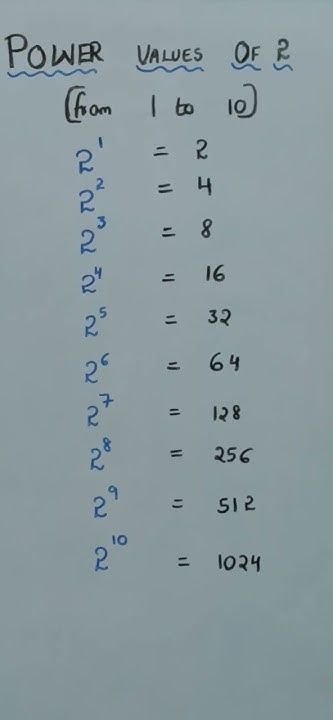 POWER VALUES OF 2
(from 1 to 10)
2¹ = 2
2² = 4
2³ = 8
2⁴ = 16
2⁵ = 32
2⁶ = 64
2⁷ = 128
2⁸ = 256
2⁹ = 512
2¹⁰ = 1024